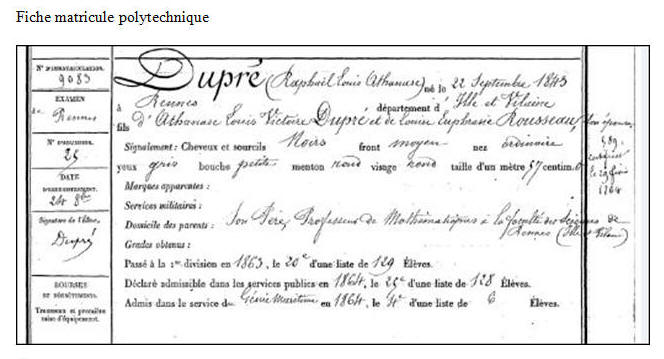 Fiche matricule polytechnique
N° D'IMMATRICULATION.
9083
EXAMEN
de Rennes
N° D'ADMISSION.
25
DATE
D'ENREGISTREMENT.
24 8bre
Signature de l'Élève.
Dupré
BOURSES
ET DÉGRÈVEMENTS.
Trousseau et première
mise d'équipement.
Dupré (Raphaël Louis Athanase) né le 22 Septembre 1843
à Rennes département d' Ille et Vilaine
fils d'Athanase Louis Victoire Dupré et de Louise Euphrasie Rousseau, son épouse
Signalement : Cheveux et sourcils Noirs front moyen nez ordinaire
yeux gris bouche petite menton rond visage rond taille d'un mètre 57 centim.
Marques apparentes :
Services militaires :
Domicile des parents : Son Père, Professeur de Mathématiques à la faculté des Sciences de
Rennes (Ille et Vilaine)
Grades obtenus :
Passé à la 1re division en 1863, le 20e d'une liste de 129 Élèves.
Déclaré admissible dans les services publics en 1864, le 25e d'une liste de 128 Élèves.
Admis dans le service du Génie Maritime en 1864, le 4e d'une liste de 6 Élèves.